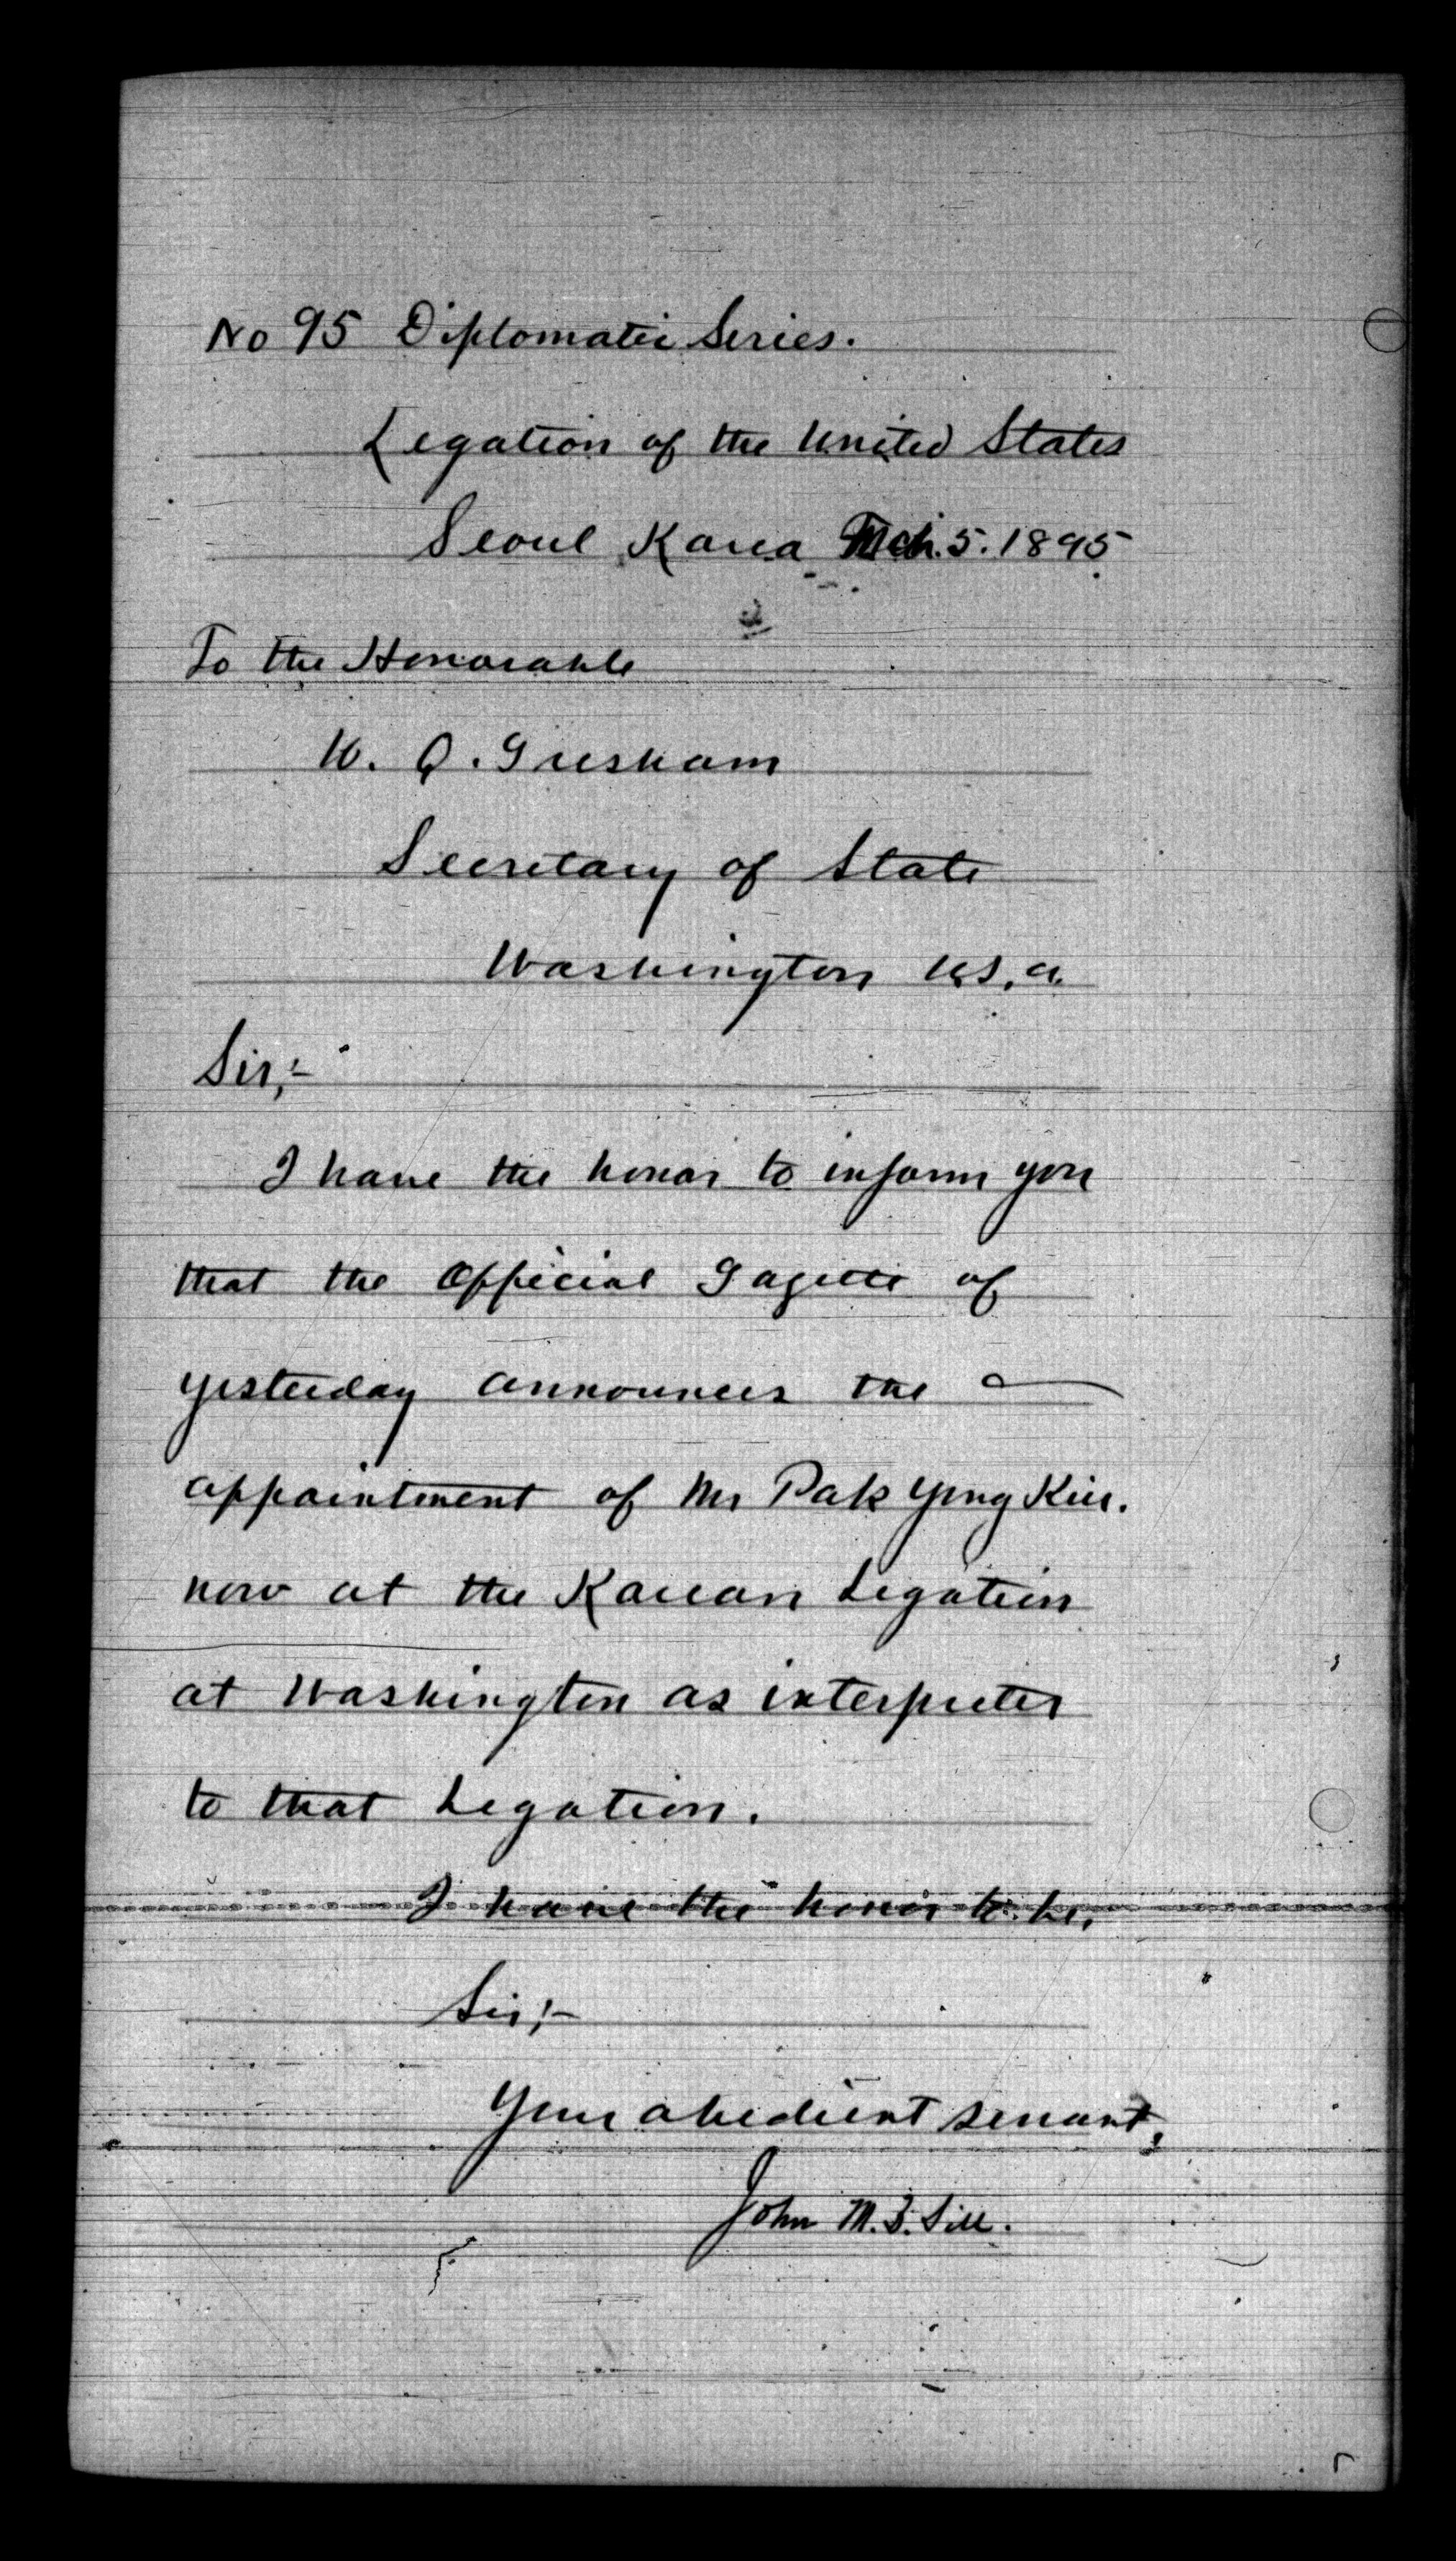 No 95 Diplomatic Series.
Legation of the United States
Seoul Korea Mch. 5. 1895
To the Honorable
W. Q. Gresham
Secretary of State
Washington U.S.A.
Sir;-
I have the honor to inform you
that the Official Gazette of
yesterday announces the
appointment of Mr Pak Yong Kiu.
now at the Korean Legation
at Washington as interpreter
to that Legation.
I have the honor to be,
Sir;-
Your obedient servant,
John M. B. Sill.